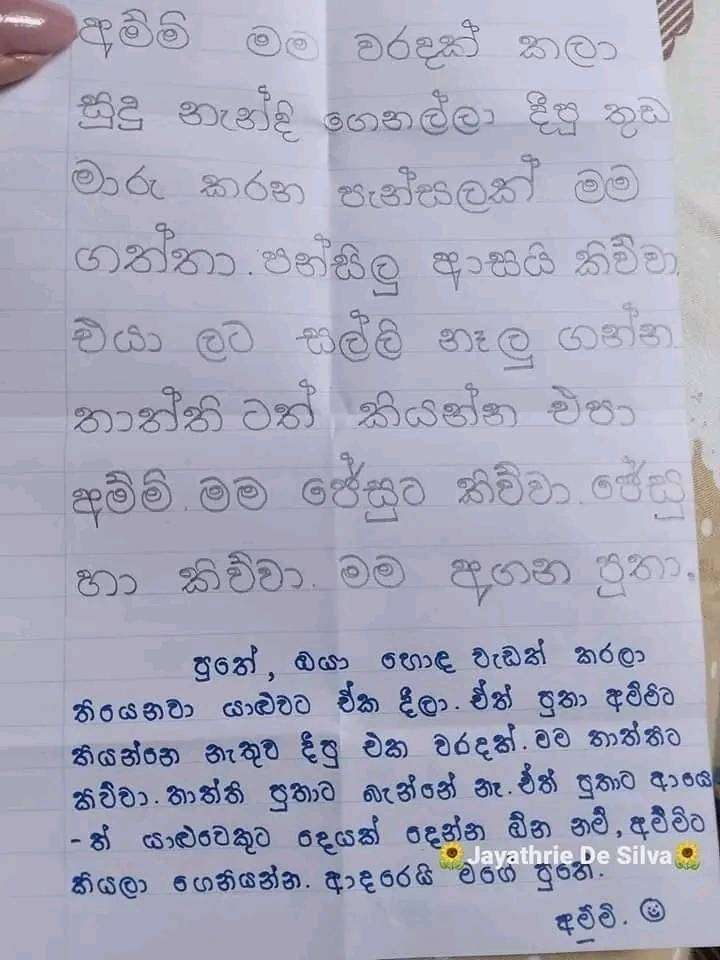 අම්මි මම වරදක් කලා
සුදු නැන්දි ගෙනල්ලා දීපු තුඩ
මාරු කරන පැන්සලක් මම
ගත්තා. පන්සිලු ආසයි කිව්වා
එයා ලට සල්ලි නෑලු ගන්න
තාත්ති ටත් කියන්න එපා
අම්මි. මම ජේසුට කිව්වා. ජේසු
හා කිව්වා. මම අගන පුතා.
පුතේ, ඔයා හොඳ වැඩක් කරලා
තියෙනවා යාළුවට ඒක දීලා. ඒත් පුතා අම්මිට
කියන්නෙ නැතුව දීපු එක වරදක්. මම තාත්තිට
කිව්වා. තාත්ති පුතාට බැන්නේ නෑ. ඒත් පුතාට ආයෙ
-ත් යාළුවෙකුට දෙයක් දෙන්න ඕන නම්, අම්මිට
කියලා ගෙනියන්න. ආදරෙයි මගේ පුතේ.
අම්මි.
Jayathrie De Silva